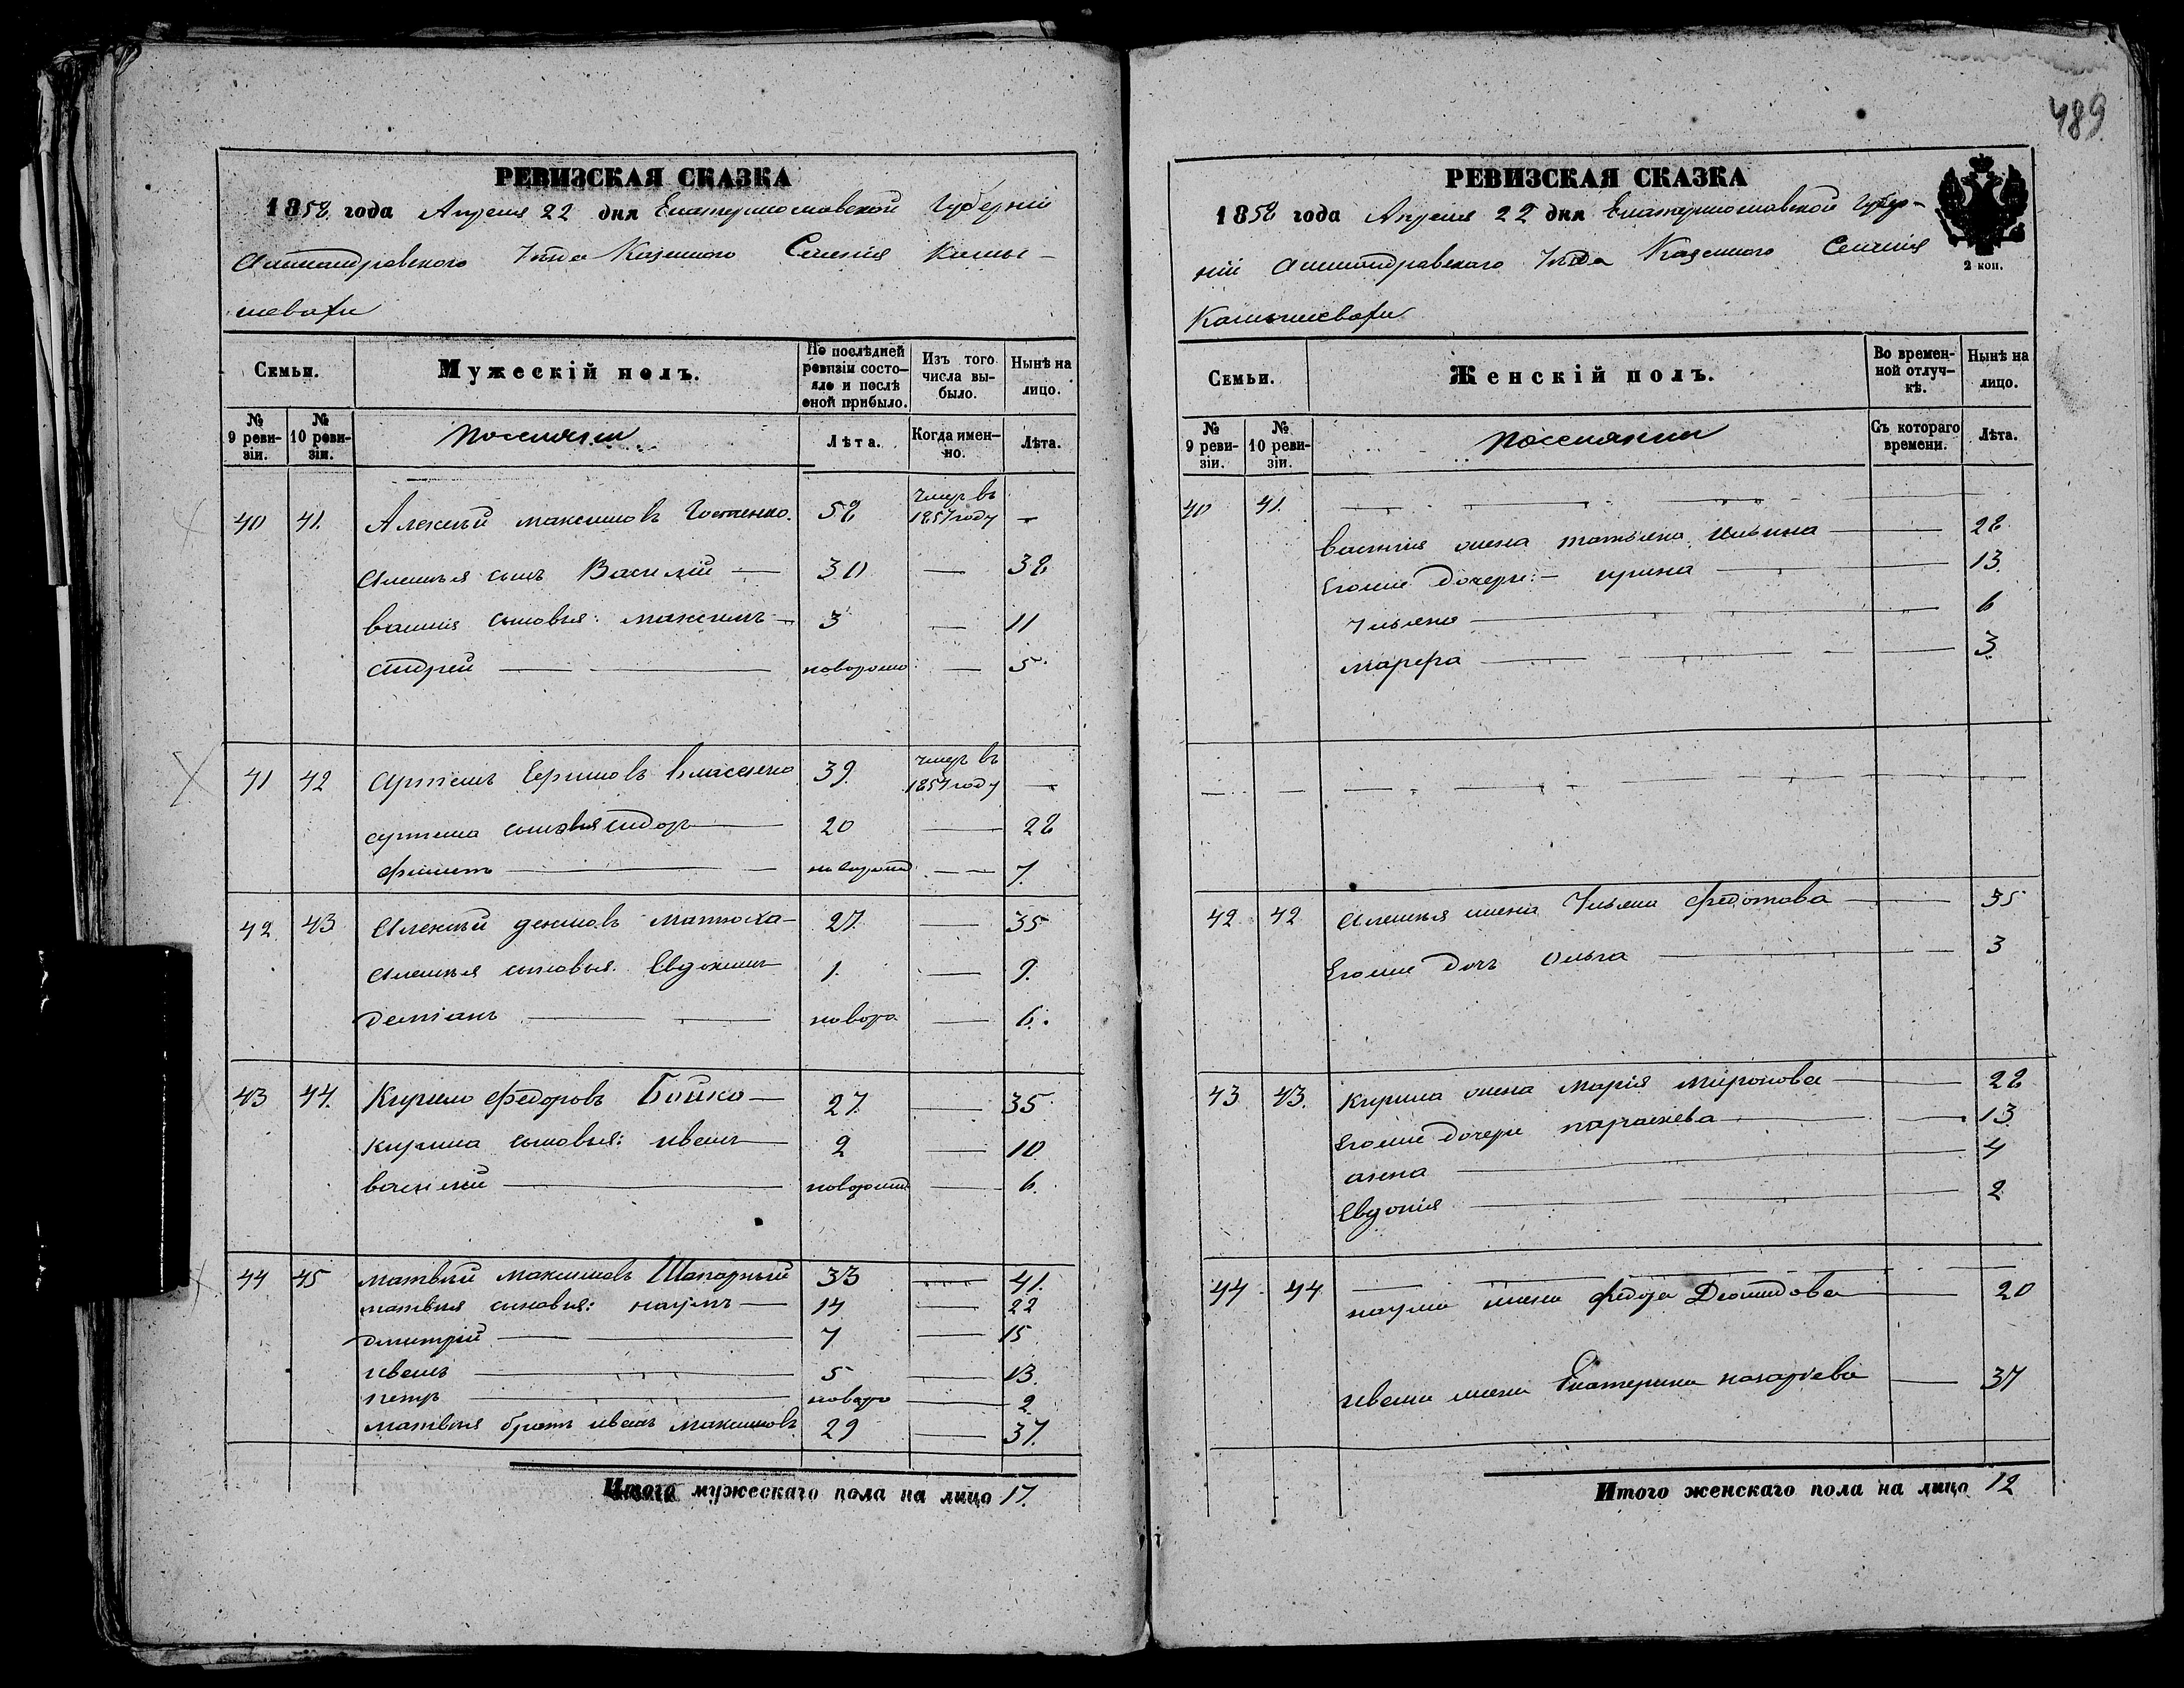 РЕВИЗСКАЯ СКАЗКА
1858 года Апреля 22 дня Екатеринославской Губерніи
Александровского Уезда Казенного Селенія Камы-
шевахи
Семьи.
Мужескій полъ.
По послѣдней ревизіи состояло и послѣ оной прибыло.
Изъ того числа выбыло.
Нынѣ на лицо.
№ 9 ревизіи.
№ 10 ревизіи.
поселяни
Лѣта.
Когда именно.
Лѣта.
40 41. Алексей максимовъ 58 умер въ 1857 году —
Алексея сынъ Василий — 30 — 38
василия сыновья: максимъ — 3 — 11
андрей — — новорожд — 5
41 42 артемъ Ефимовъ власенко 39 умер въ 1854 году —
артема сыновья сидоръ — 20 — 28
филипъ — — новорожд — 7.
42 43 Алексей Матюха — 27 — 35
Алексея сыновья: Евдокимъ 1. — 9.
демянъ — — новоро — 6.
43 44. Кирило Федоровъ Бойко — 27 — 35
кирила сыновья: иванъ — 2 — 10
василий — новорожд — 6.
44 45 матвей максимовъ Шапарный 33 — 41.
матвея сыновья: наумъ — 14 — 22
дмитрій — — 7 — 15
иванъ — — 5 — 13.
петръ — новоро — 2
матвея братъ иванъ максимовъ 29 — 37.
Итого мужескаго пола на лицо 17.
489
РЕВИЗСКАЯ СКАЗКА
1858 года Апреля 22 дня Екатеринославской Губер-
ніи Александровскаго Уезда Казенного Селенія
Камышевахи
2 коп.
Семьи.
Женскій полъ.
Во временной отлучкѣ.
Нынѣ на лицо.
№ 9 ревизіи.
№ 10 ревизіи.
поселянки
Съ котораго времени.
Лѣта.
40 41. — — — —
василия жена татьяна ильина — — 28
Егоже дочери: — ирина — — 13.
Ульяна — — 6
марфа — — — 3
— — — — — — —
42 42 Алексея жена Ульяна Федотова — — 35
Егоже дочь Ольга — — 3
43 43. Кирила жена Марія миронова — — 28
Егоже дочери параскева — — 13.
анна — — 4
Евдокія — — 2
44 44 — — — —
наума жена Федора — 20
ивана жена Екатерина назарьева — 37
Итого женскаго пола на лицо 12